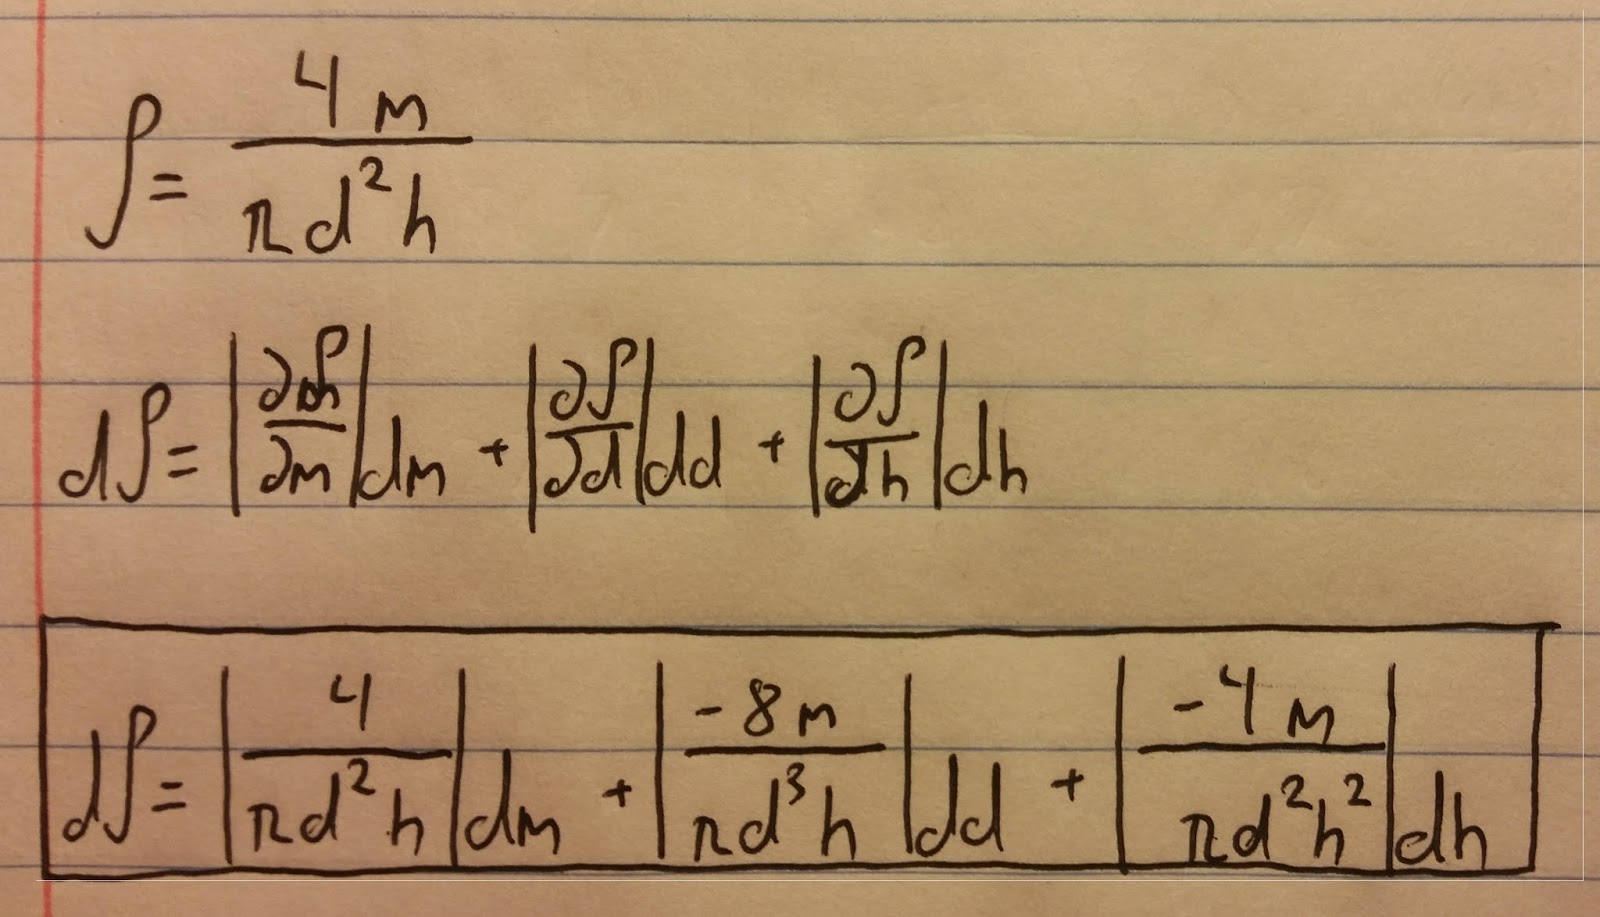 ρ = 4m / πd²h
dρ = |∂ρ/∂m|dm + |∂ρ/∂d|dd + |∂ρ/∂h|dh
dρ = |4 / πd²h|dm + |-8m / πd³h|dd + |-4m / πd²h²|dh